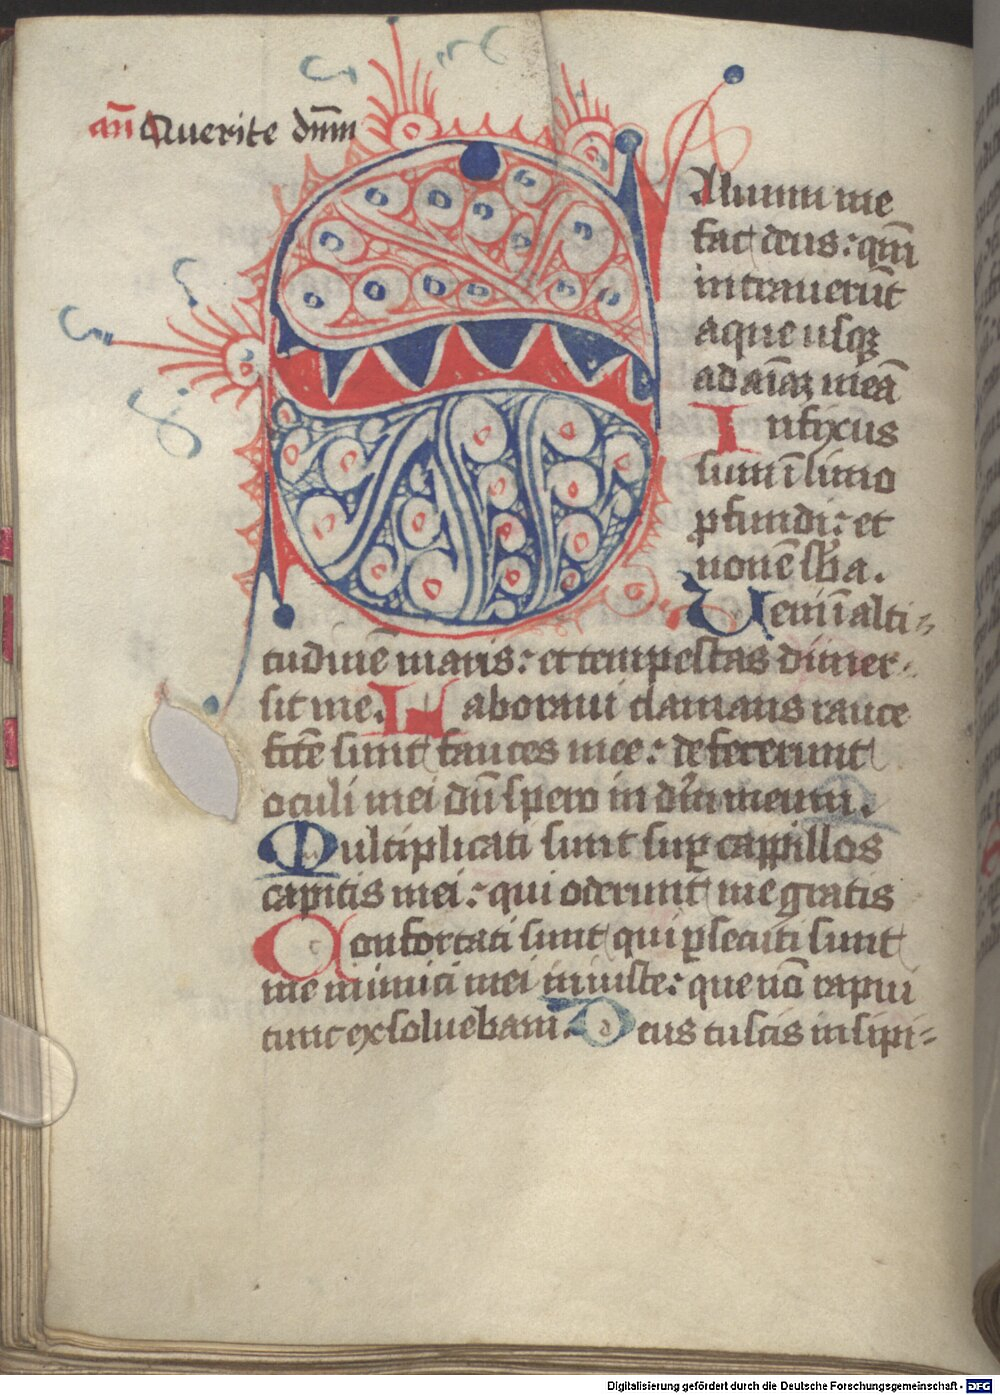 an̄ Querite dn̄m
S Aluum me
fac deus: qm̄
intrauerūt
aque usqꝫ
ad aīaꝫ meā
Infixus
sum ī limo
ꝓfundi: et
non ē sb̄a.
Veni ī alti-
tudinē maris: et tempestas dimer-
sit me. Laboraui clamans rauce
fcē sunt fauces mee: defecerunt
oculi mei dū spero in dm̄ meum.
Multiplicati sunt suꝑ cappillos
capitis mei: qui oderunt me gratis
Confortati sunt qui ꝑsecuti sunt
me inimici mei iniuste: que nō rapui
tunc exsoluebam. Deus tu scis insipi-
Digitalisierung gefördert durch die Deutsche Forschungsgemeinschaft - DFG